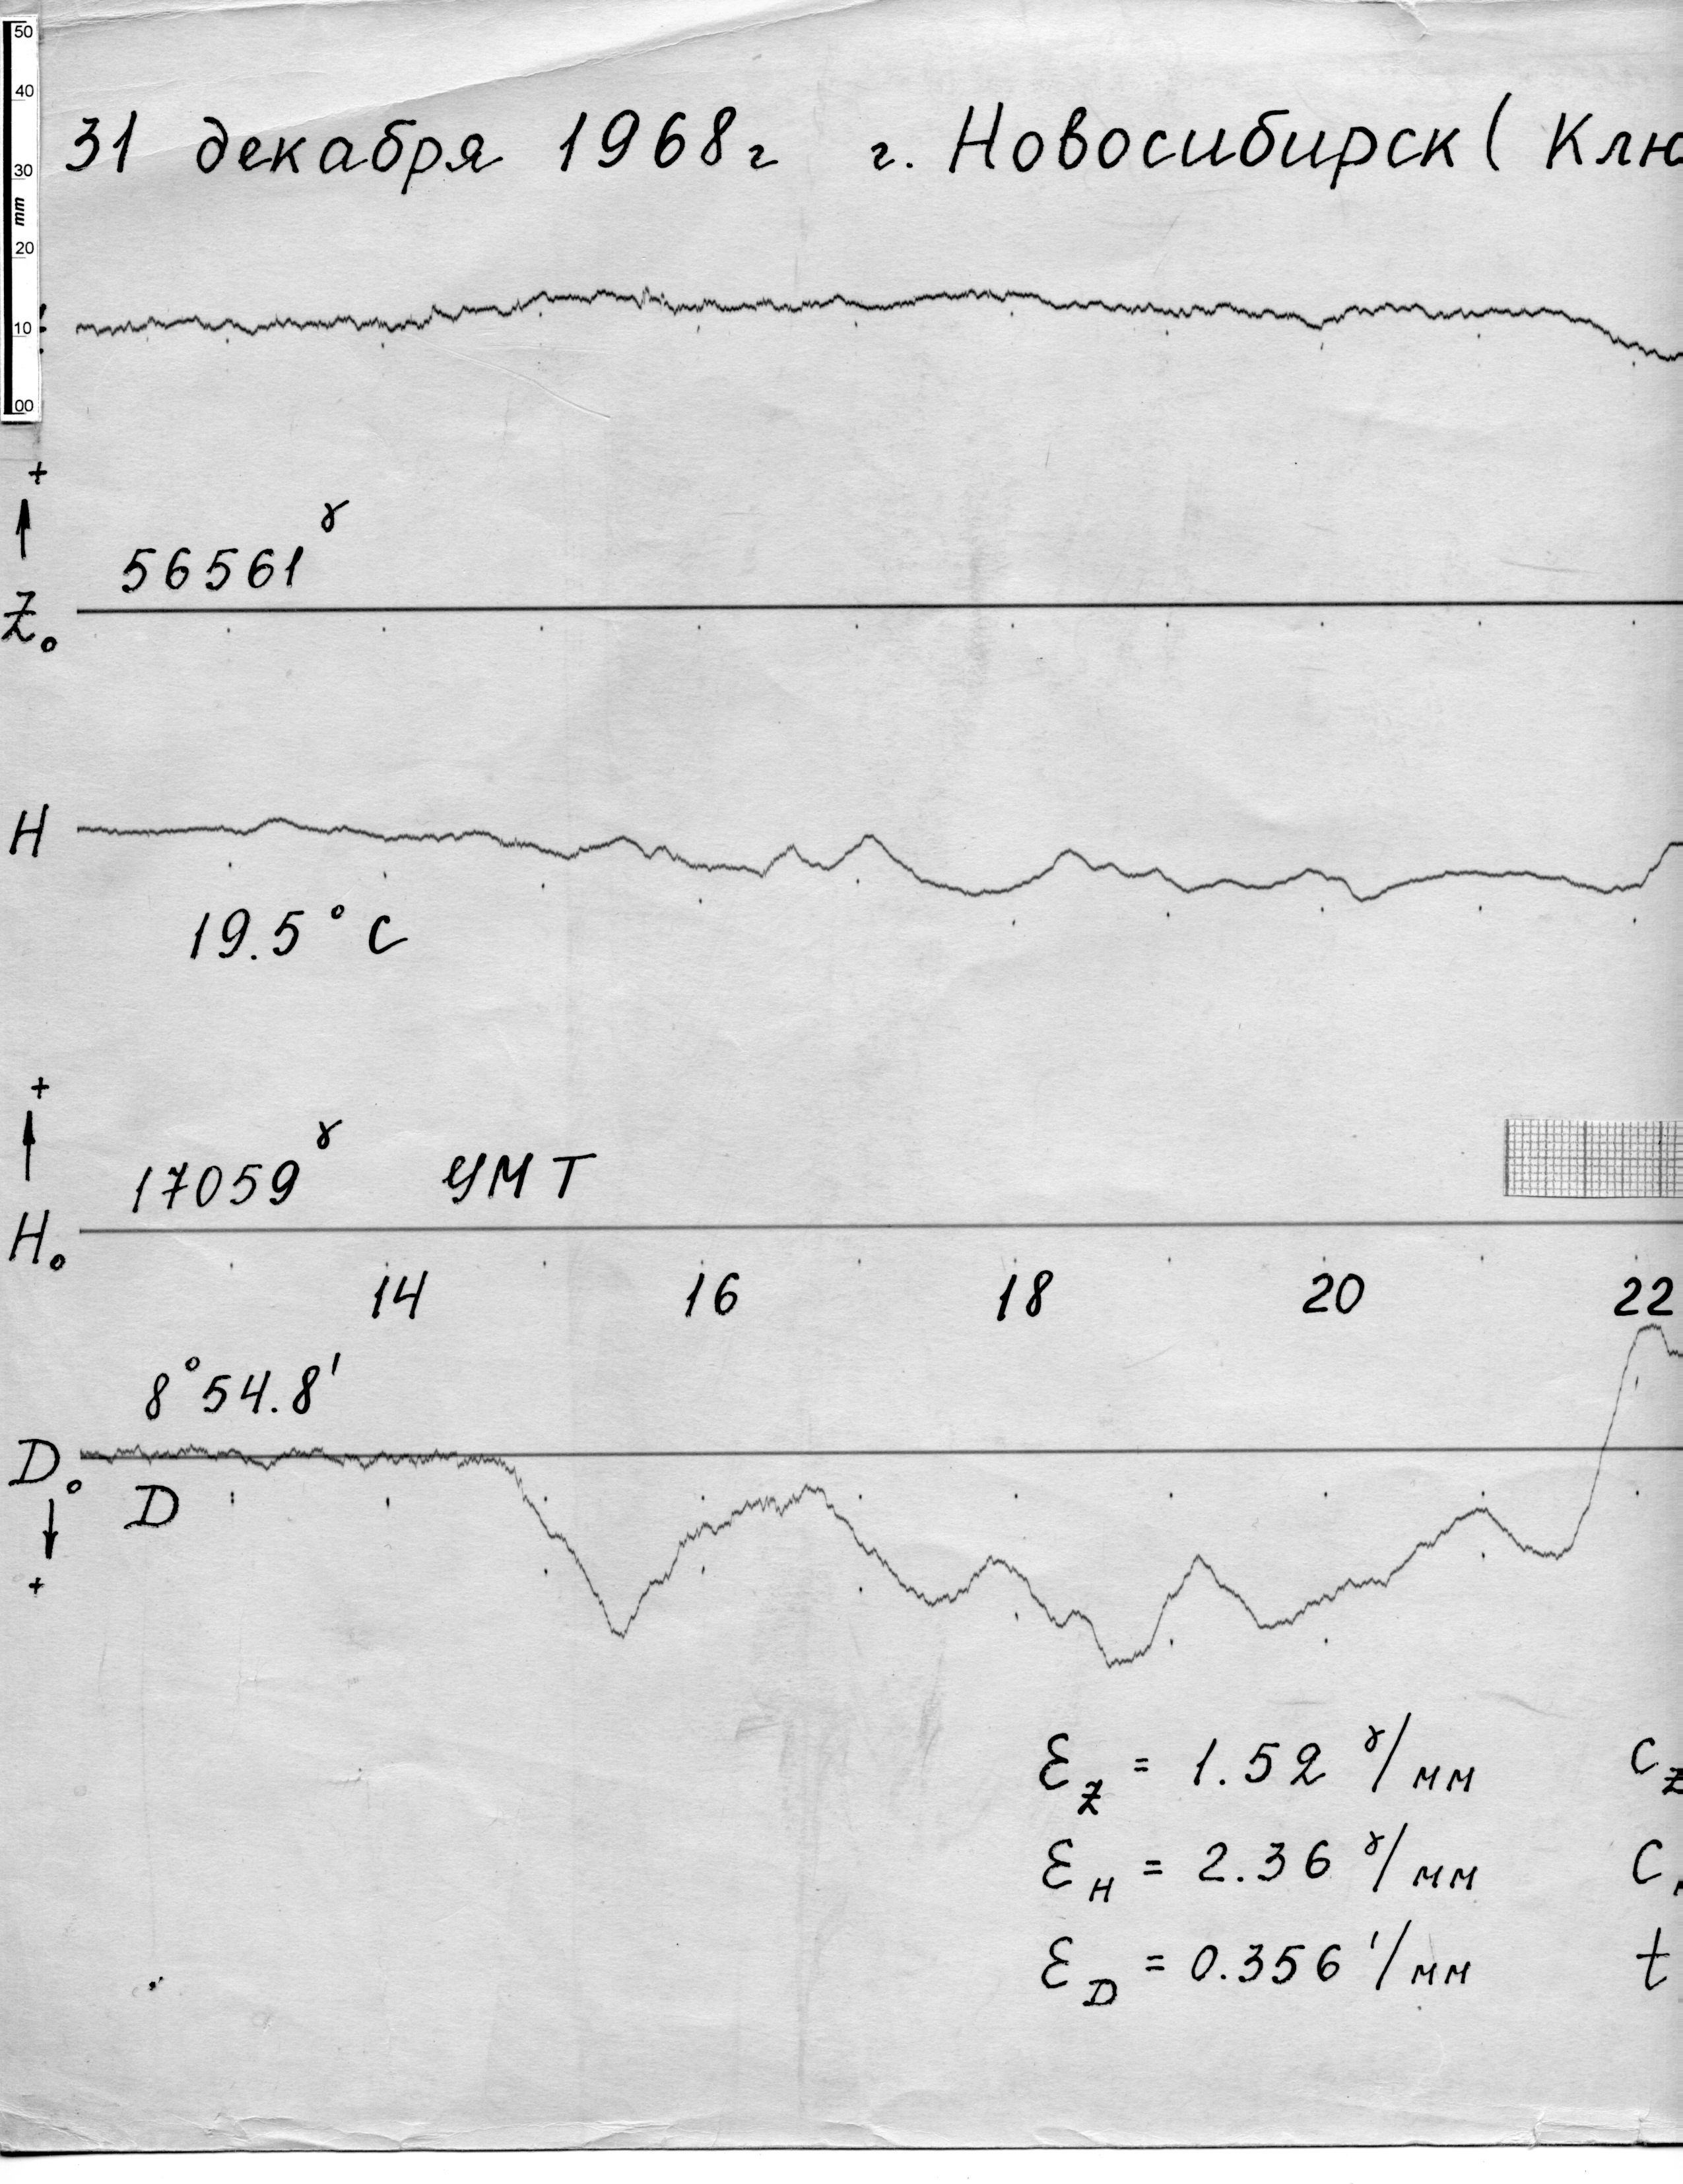 50
40
30
mm
20
10
00
31 декабря 1968г г. Новосибирск ( Клю
+
56561 γ
Z₀
H
19.5° C
+
17059 γ УМТ
H₀
14 16 18 20 22
8° 54.8'
D₀
D
+
Ɛ_Z = 1.52 γ/мм C_Z
Ɛ_H = 2.36 γ/мм C
Ɛ_D = 0.356 '/мм t